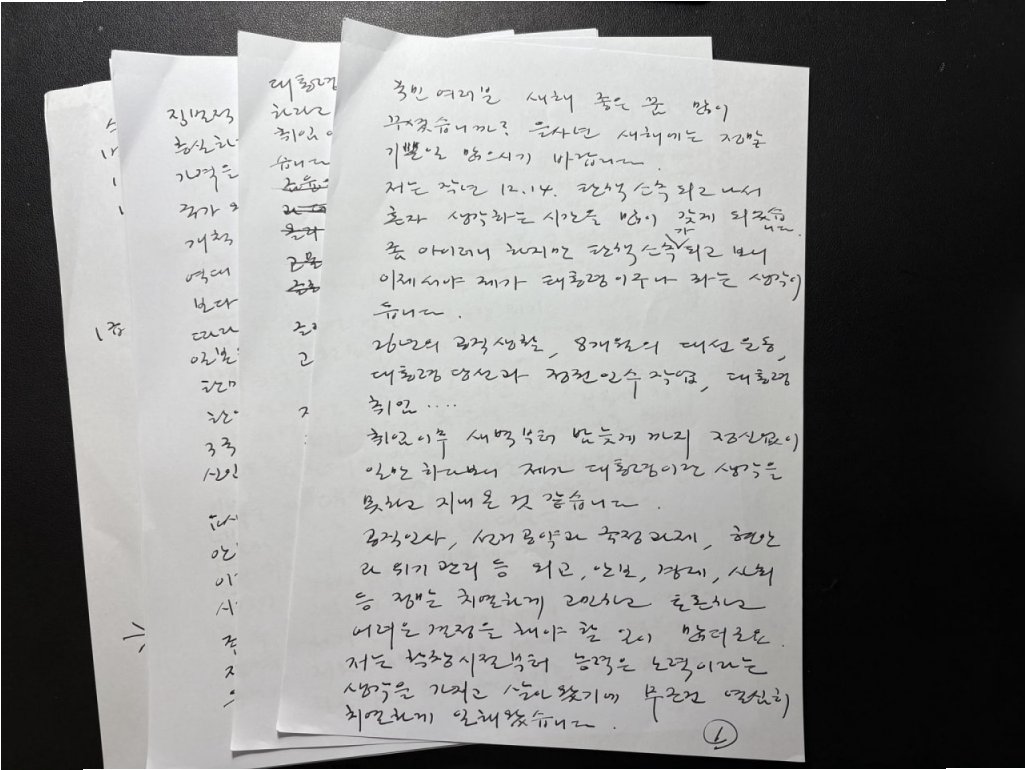 대통령
하라고
취임
습니다
고
직무
충실하
가격은
국가
개척
역대
보다
따라
일본
한미
한
3국
국민 여러분 새해 좋은 꿈 많이
꾸셨습니까? 을사년 새해에는 정말
기쁜일 많으시기 바랍니다.
저는 작년 12.14. 탄핵 소추 되고 나서
혼자 생각하는 시간을 많이 갖게 되었습니다.
좀 아이러니 하지만 탄핵 소추가 되고 보니
이제서야 제가 대통령이구나 라는 생각이
듭니다.
26년의 공직생활, 8개월의 대선 운동,
대통령 당선과 정권 인수 작업, 대통령
취임 ....
취임이후 새벽부터 밤늦게 까지 정신없이
일만 하다보니 제가 대통령이란 생각을
못하고 지내온 것 같습니다.
공직인사, 선거 공약과 국정 과제, 현안
과 위기 관리 등 외교, 안보, 경제, 사회
등 정말 치열하게 고민하고 토론하고
어려운 결정을 해야 할 일이 많더군요.
저는 학창시절부터 능력은 노력이라는
생각을 가지고 살아 왔기에 무조건 열심히
치열하게 일해왔습니다.
1